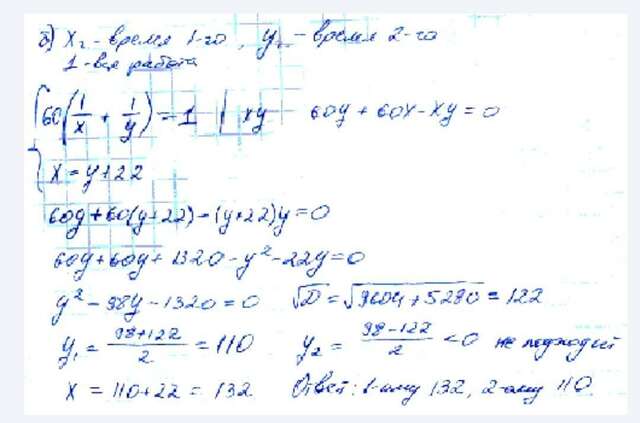 б) x₂ - время 1-го, y₂ - время 2-го
1 - вся работа
60(1/x + 1/y) = 1 | xy 60y + 60x - xy = 0
x = y + 22
60y + 60(y+22) - (y+22)y = 0
60y + 60y + 1320 - y² - 22y = 0
y² - 98y - 1320 = 0 √D = √9604 + 5280 = 122
y₁ = (98+122)/2 = 110 y₂ = (98-122)/2 < 0 не подходит
x = 110 + 22 = 132 Ответ: 1-ому 132, 2-ому 110.